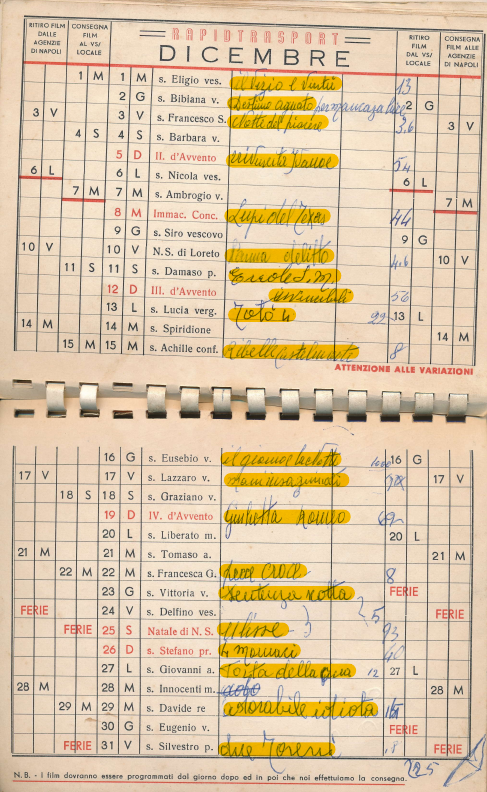 RITIRO FILM DALLE AGENZIE DI NAPOLI
CONSEGNA FILM AL VS/ LOCALE
RAPIDTRASPORT
DICEMBRE
RITIRO FILM DAL VS/ LOCALE
CONSEGNA FILM ALLE AGENZIE DI NAPOLI
1 M 1 M s. Eligio ves. il vizio e virtù 13
2 G s. Bibiana v. aguato per mancaza luce 2 G
3 V 3 V s. Francesco S. Notte del piacere 3.6 3 V
4 S 4 S s. Barbara v.
5 D II. d'Avvento 54
6 L 6 L s. Nicola ves. 6 L
7 M 7 M s. Ambrogio v. 7 M
8 M Immac. Conc. Lupi del Texas 44
9 G s. Siro vescovo 9 G
10 V 10 V N.S. di Loreto delitto 4.6 10 V
11 S 11 S s. Damaso p. Ercole S. M
12 D III. d'Avvento invincibili 56
13 L s. Lucia verg. Totò 4 22 13 L
14 M 14 M s. Spiridione 14 M
15 M 15 M s. Achille conf. Ribelli 8
ATTENZIONE ALLE VARIAZIONI
16 G s. Eusebio v. il giorno 1000 16 G
17 V 17 V s. Lazzaro v. 17 V
18 S 18 S s. Graziano v.
19 D IV. d'Avvento Giulietta Romeo
20 L s. Liberato m. 20 L
21 M 21 M s. Tomaso a. 21 M
22 M 22 M s. Francesca G. croce 8
23 G s. Vittoria v. Sentenza FERIE
FERIE 24 V s. Delfino ves. 25 FERIE
FERIE 25 S Natale di N. S. Ulisse 93
26 D s. Stefano pr. 4 Monaci 60
27 L s. Giovanni a. della 12 27 L
28 M 28 M s. Innocenti m. 28 M
29 M 29 M s. Davide re adorabile idiota
30 G s. Eugenio v.
FERIE 31 V s. Silvestro p. due Toreri 8 FERIE
225
N.B. - I film dovranno essere programmati dal giorno dopo ed in poi che noi effettuiamo la consegna.